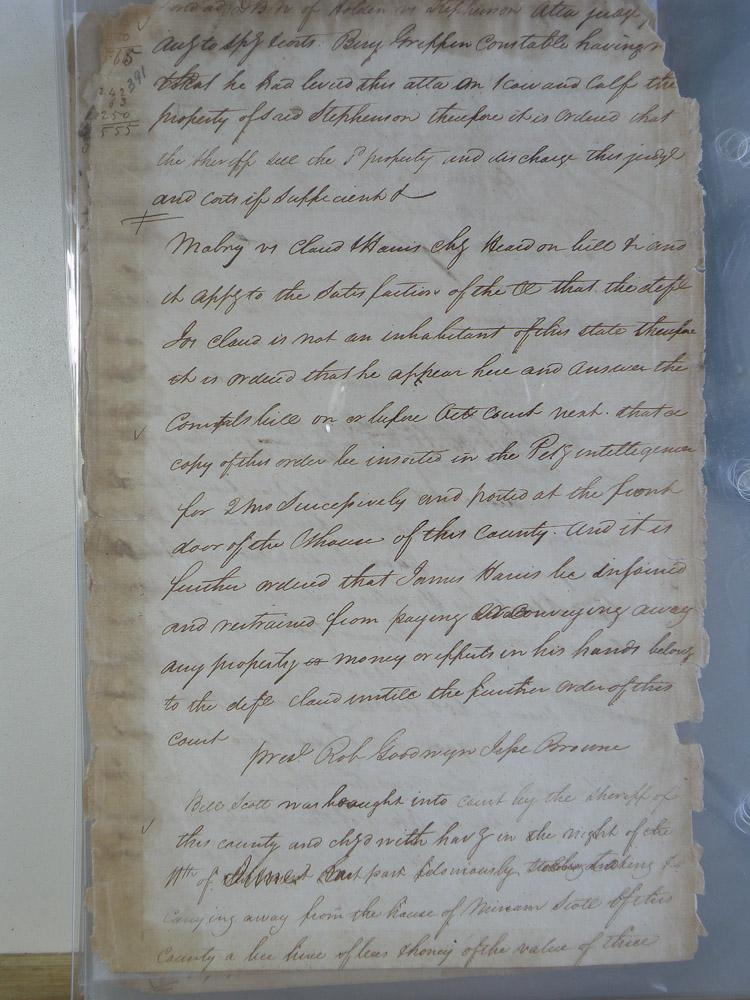 of Holden vs Stephenson atta judgt
Augto Spg Scotts. Berry Grippen Constable having
that he had levied this atta on 1 Cow and Calf the
property of said Stephenson therefore it is ordered that
the sheriff sell the sd property and discharge this judgt
and costs if sufficient &
65
391
242
63
250
555
Mabry vs Claud & Harris Chy Heard on bill &c and
it appg to the satisfaction of the Ct that the deft
Jos Claud is not an inhabitant of this state therefore
it is ordered that he appear here and answer the
Complts bill on or before Octo court next. that a
copy of this order be inserted in the Petg intelligencer
for 2 mo Successively and posted at the front
door of the Ct house of this County. And it is
further ordered that James Harris be injoined
and restrained from paying conveying away
any property or money or effects in his hands belong
to the deft Claud untill the further order of this
Court
presd Rob Goodwyn Jesse Browne
Bill Scott was brought into court by the sheriff of
this county and chgd with havg in the night of the
11th of last past feloniously taking &
carrying away from the house of Miriam Scott of this
County a bee hive of bees & honey of the value of three